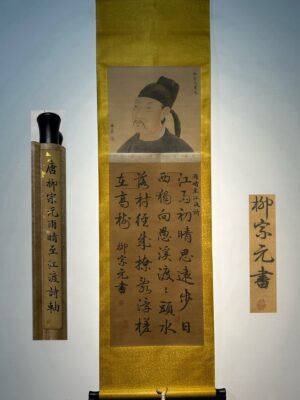 唐柳宗元雨晴至江渡詩軸
雨晴至江渡詩
江雨初晴思遠步日
西獨向愚溪渡〻頭水
落村徑成撩亂浮槎
在高樹
柳宗元書
柳宗元書